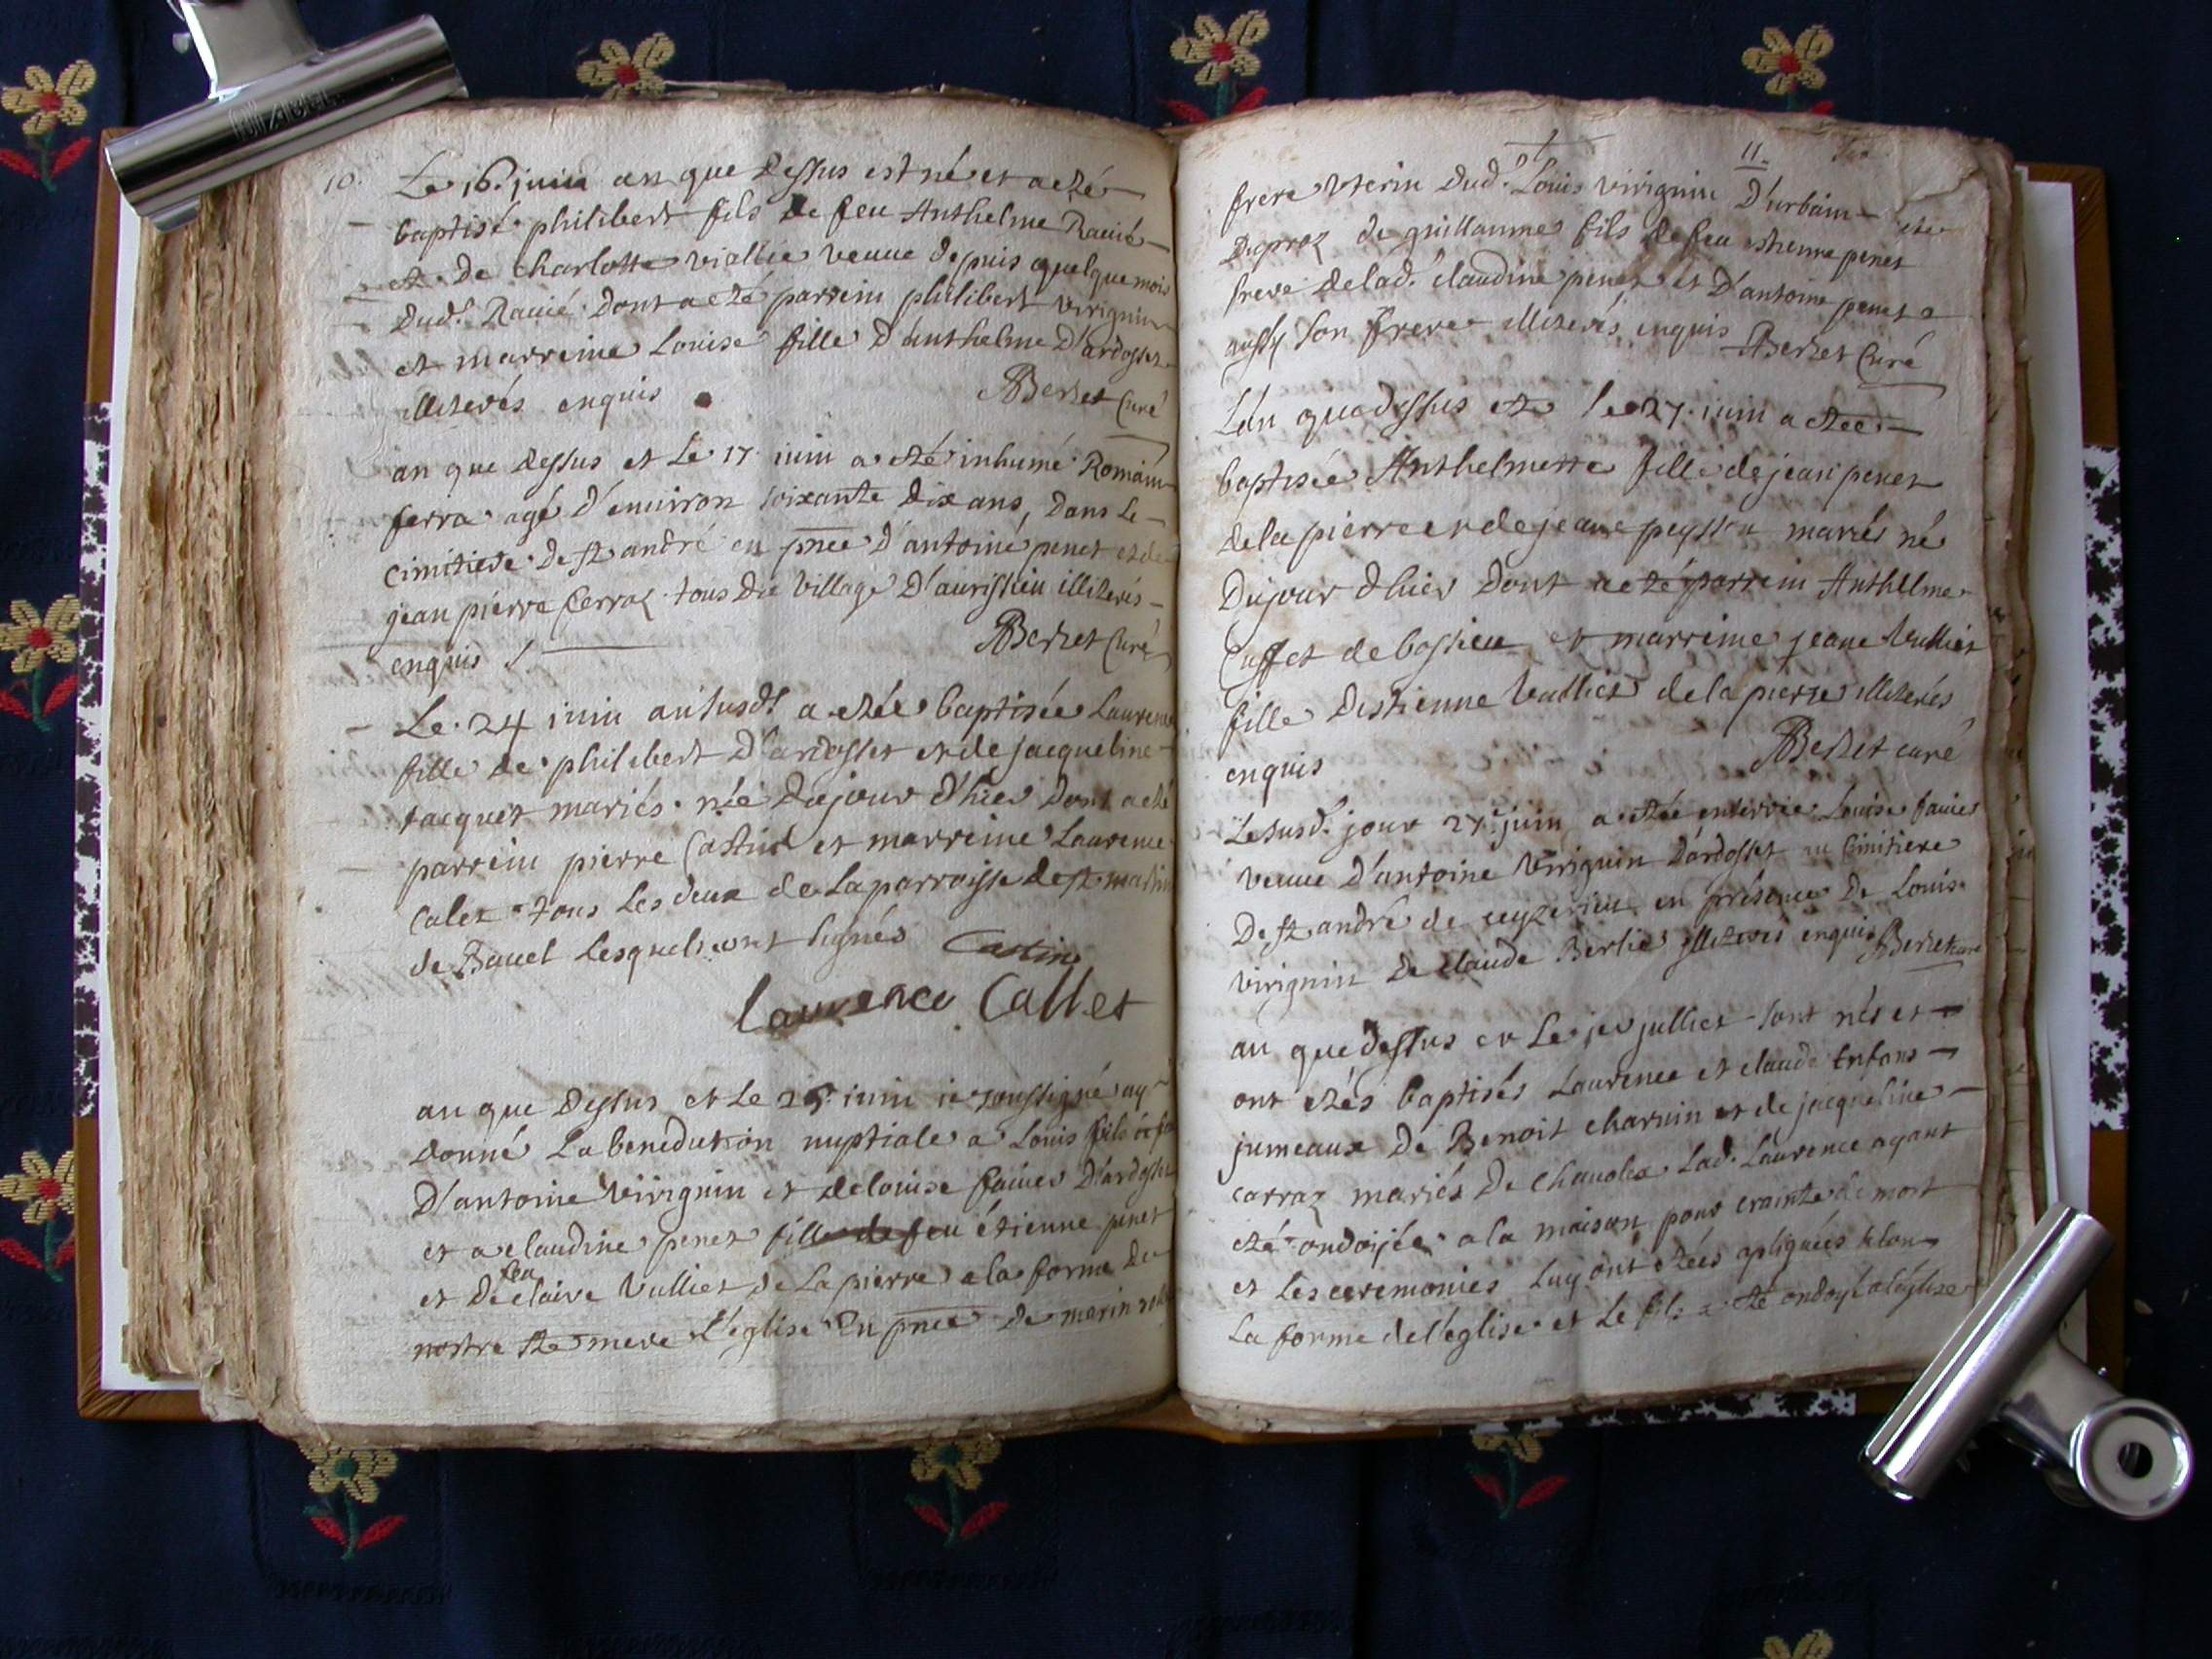 10.
Le 16e juin an que dessus est né et a eté
baptisé philibert fils de feu Anthelme Ravié
et de charlotte viallie veuve depuis quelque mois
dud.t Ravié dont a eté parrein philibert virignin
et marreine Louise fille d'anthelme D'ardosset
illiterés enquis Berzet Curé
an que dessus et Le 17 juin a eté inhumé Romain
ferra agé d'environ soixante dix ans, dans Le
cimitiere de st andré en pnce d'antoine penet et de
jean pierre Carraz tous du village d'aurissieu illiterés
enquis /. Berzet Curé
Le 24 juin an susd.t a etée baptisée Laurence
fille de philibert D'ardosset et de jacqueline
jacquet mariés née du jour d'hier dont a eté
parrein pierre Castin et marreine Laurence
Calet tous Les deux de La parroisse de st martin
de Bavel Lesquels ont signés Castin
Laurence Callet
an que dessus et Le 25 juin je soussigné ay
donné La benediction nuptiale a Louis fils de feu
D'antoine virignin et de louise favier D'ardosset
et a claudine penet fille de feu étienne penet
et de feu claire Vulliet de La pierre a la forme de
nostre ste mere L'eglise en pnce de marin
11.
frere uterin dud.t Louis virignin D'urbain
Dupraz de guillaume fils de feu ethienne penet
frere de lad.e claudine penet et D'antoine penet
aussy son frere illiterés enquis Berzet Curé
L'an que dessus et le 27 juin a etée
baptisée Anthelmette fille de jean penet
de la pierre et de jeane peysson mariés né
du jour d'hier dont a eté parrein Anthelme
Cuffet de bossieu et marreine jeane Vulliet
fille d'estienne Vulliet de la pierre illiterés
enquis Berzet curé
Le susd.t jour 27e juin a etée enterrée Louise favier
veuve D'antoine Virignin D'ardosset au Cimitiere
De st andré de ceyzerieu en présence de Louis
virignin de claude Berlie illiterés enquis Berzet curé
an que dessus et Le jer julliet sont nés et
ont etés baptisés Laurence et claude Enfans
jumeaux de Benoit charvin et de jacqueline
carraz mariés de chavolex Lad. Laurence ayant
eté ondoijée a la maison pour crainte de mort
et Les ceremonies Luy ont etées apliquées selon
La forme de l'eglise et Le fils a eté ondoyé a l'eglise